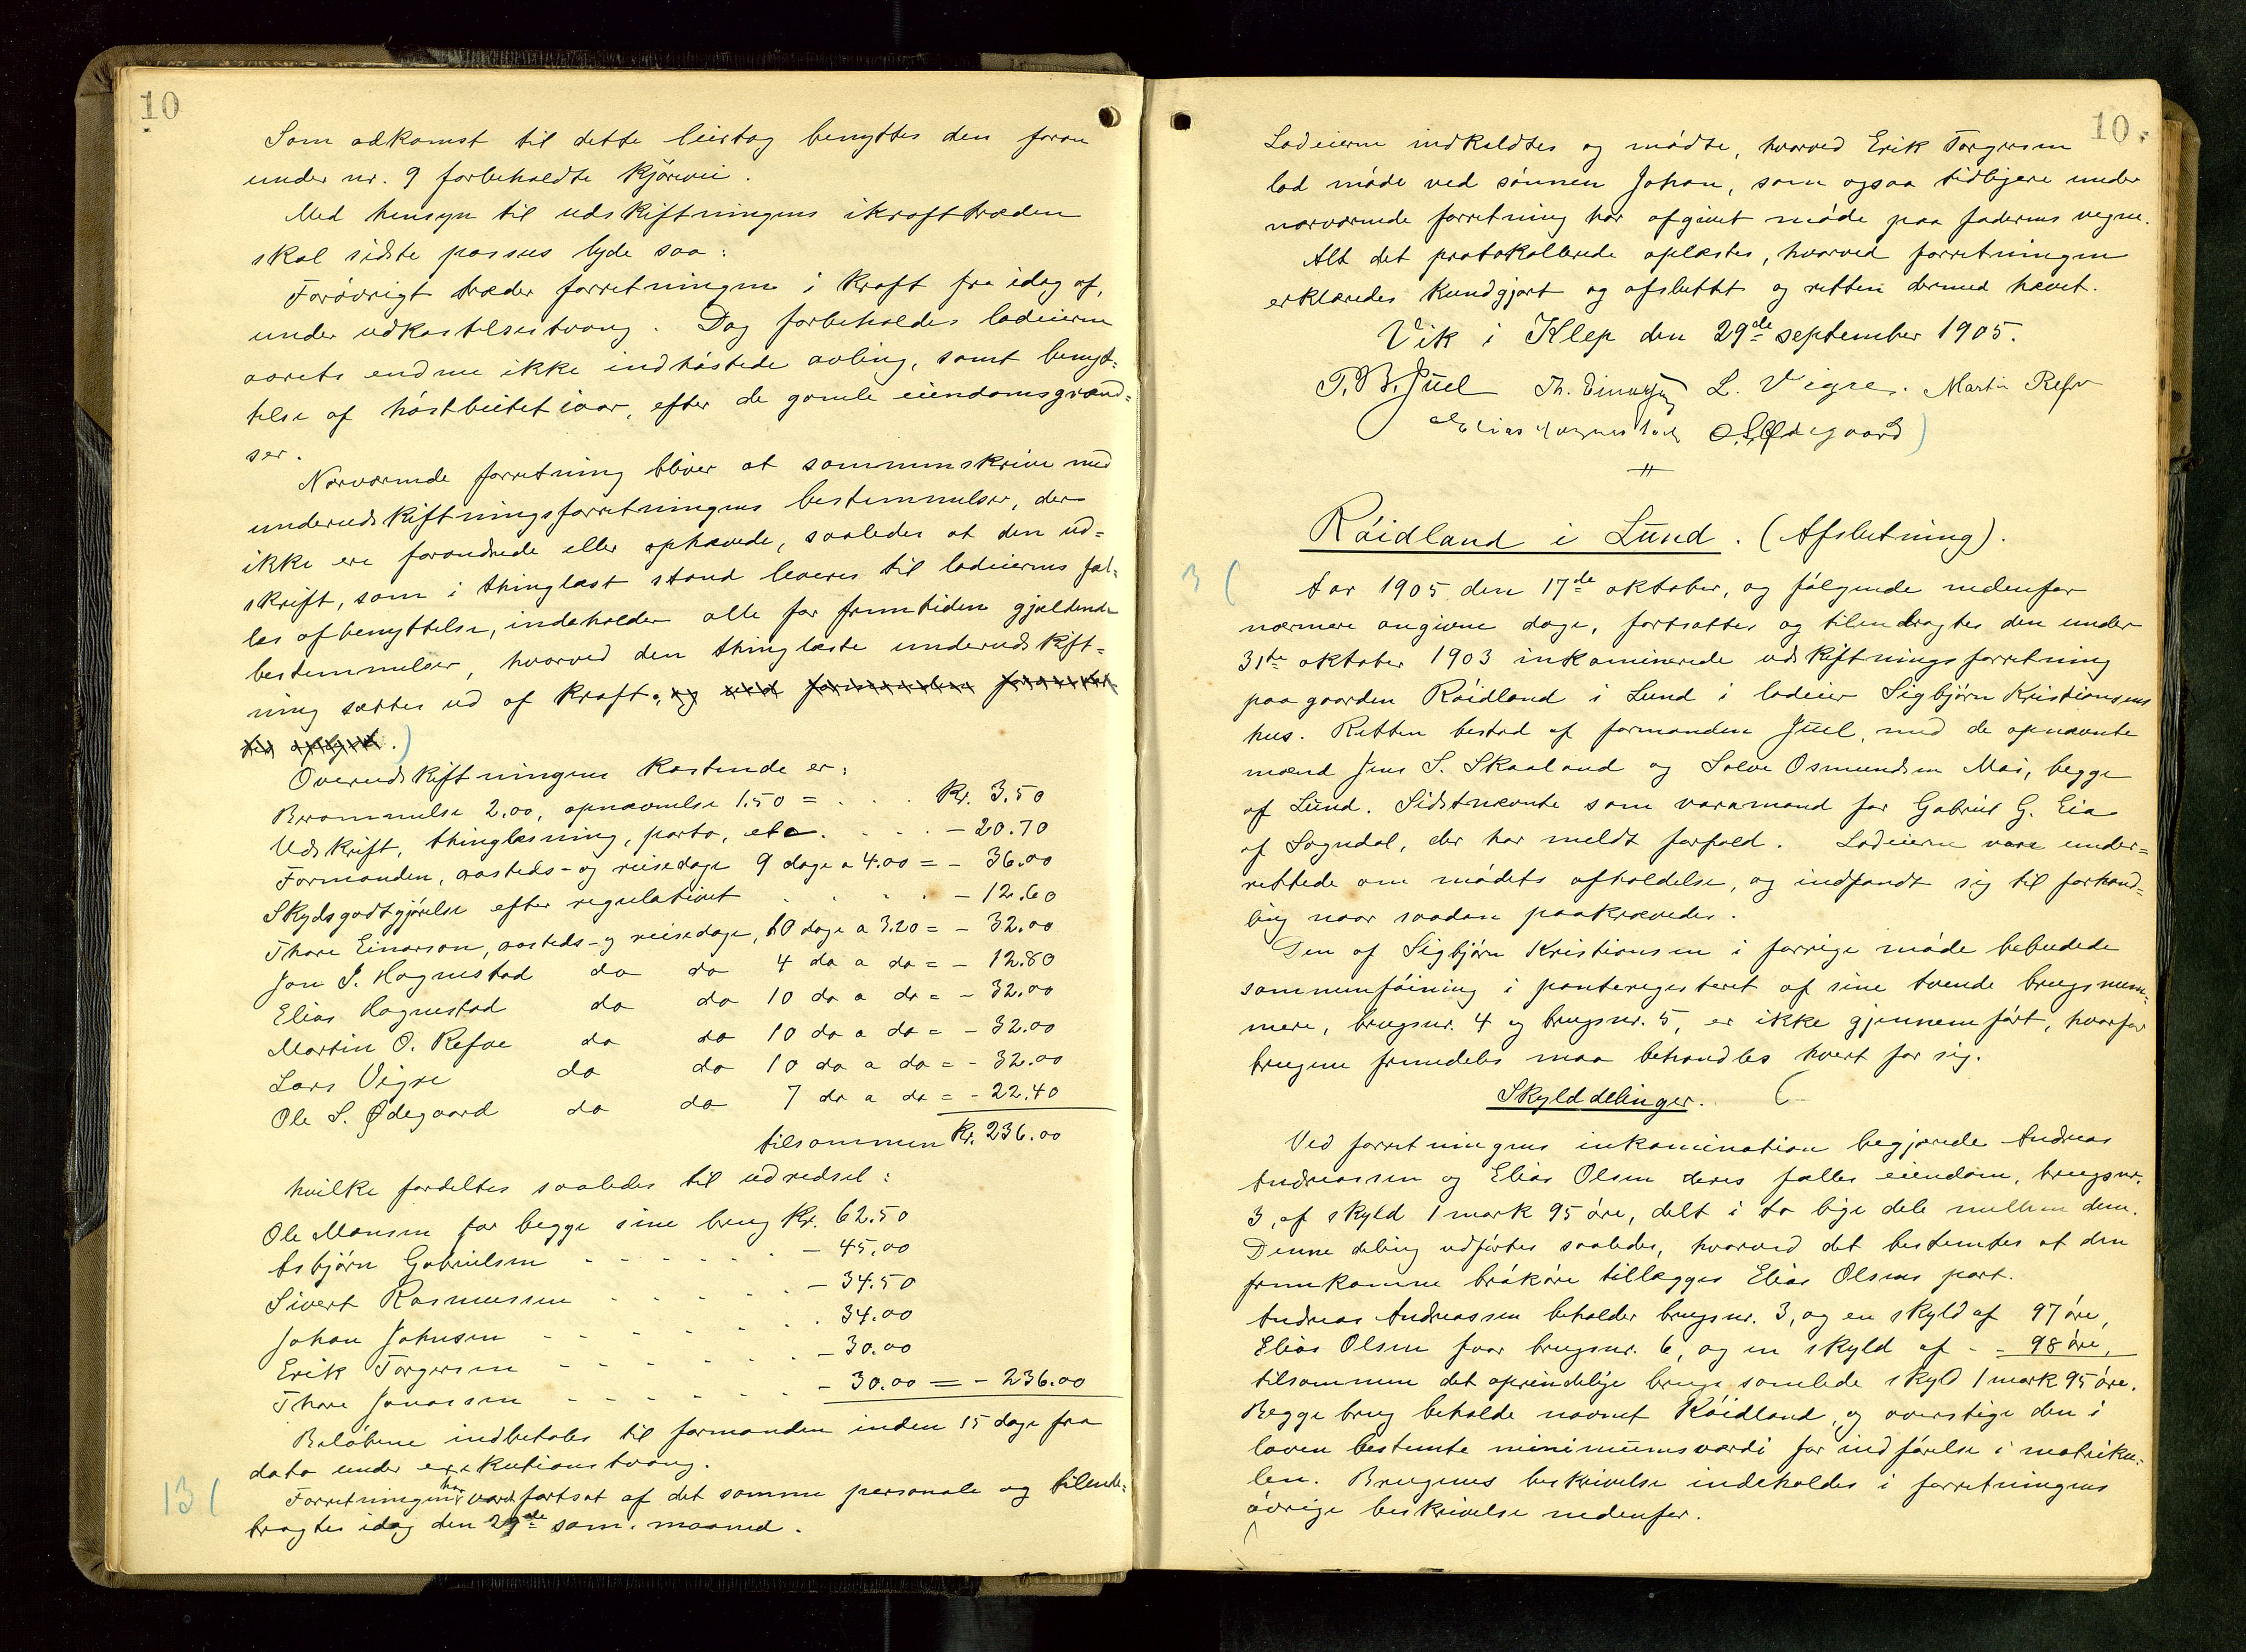 10
Som adkomst til dette leirtag benyttes den foran
under nr. 9 forbeholdte kjörevei.
Med hensyn til udskiftningens ikrafttræden
skal sidste passus lyde saa:
Forövrigt træder forretningen i kraft fra idag af,
under udkastelsestvang. Dog forbeholdes lodeierne
aarets endnu ikke indhöstede avling, samt benyt-
telse af höstbeitet iaar, efter de gamle eiendomsgrænd-
ser.
Nærværende forretning bliver at sammenskrive med
underudskiftningsforretningens bestemmelser, der
ikke ere forandrede eller ophævede, saaledes at den ud-
skrift, som i thinglæst stand leveres til lodeiernes fæl-
les afbenyttelse, indeholder alle for fremtiden gjældende
bestemmelser, hvorved den thinglæste underudskift-
ning sættes ud af kraft. og med formandens
.)
Overudskiftningens kostende er:
Berammelse 2.00, opnævnelse 1.50 = . . . Kr. 3.50
Udskrift, thinglæsning, porto, etc. . . . - 20.70
Formanden, aasteds- og reisedage 9 dage a 4.00 = - 36.00
Skydsgodtgjörelse efter regulativet . . . . - 12.60
Thore Einarson, aasteds- og reisedage, 10 dage a 3.20 = - 32.00
Jon J. Hognestad do do 4 do a do = - 12.80
Elias Hognestad do do 10 do a do = - 32.00
Martin O. Refve do do 10 do a do = - 32.00
Lars Vigre do do 10 do a do = - 32.00
Ole S. Ødegaard do do 7 do a do = - 22.40
tilsammen Kr. 236.00
hvilke fordeltes saaledes til udredsel:
Ole Monsen for begge sine brug Kr. 62.50
Asbjörn Gabrielsen - - - - - - - 45.00
Sivert Rasmussen - - - - - - 34.50
Johan Johnsen - - - - - - . 34.00
Erik Torgersen - - - - - - - 30.00
Thore Jonassen - - - - - - - 30.00 = - 236.00
Belöbene indbetales til formanden inden 15 dage fra
dato under exekutionstvang.
13 ( Forretningen har været fortsat af det samme personale og tilende-
bragtes idag den 29de sam. maaned.
10.
Lodeierne indkaldtes og mödte, hvorved Erik Torgersen
lod möde ved sönnen Johan, som ogsaa tidligere under
nærværende forretning har afgivet möde paa faderens vegne.
Alt det protokollerede oplæstes, hvorved forretningen
erklæredes kundgjort og afsluttet og retten dermed hævet.
Vik i Klep den 29de september 1905.
T. B. Juel Th. Einarsen L. Vigre. Martin Refve
Elias Hognestad O. S. Ødegaard)
=//=
Röidland i Lund. (Afslutning).
3 ( Aar 1905 den 17de oktober, og fölgende nedenfor
nærmere angivne dage, fortsattes og tilendebragtes den under
31te oktober 1903 inkaminerede udskiftningsforretning
paa gaarden Röidland i Lund i lodeier Sigbjörn Kristiansens
hus. Retten bestod af formanden Juel, med de opnævnte
mænd Jens S. Skaaland og Salve Osmundsen Moi, begge
af Lund. Sidstnævnte som varamand for Gabriel G. Eia
af Sogndal, der har meldt forfald. Lodeierne vare under-
rettede om mödets afholdelse, og indfandt sig til forhand-
ling naar saadan paakrævedes.
Den af Sigbjörn Kristiansen i forrige möde bebudede
sammenföining i panteregisteret af sine tvende brugsnum-
mere, brugsnr. 4 og brugsnr. 5, er ikke gjennemfört, hvorfor
brugene fremdeles maa behandles hvert for sig.
Skylddelinger. (
Ved forretningens inkamination begjærede Andreas
Andreassen og Elias Olsen deres fælles eiendom, brugsnr.
3, af skyld 1 mark 95 öre, delt i to lige dele mellem dem.
Denne deling udförtes saaledes, hvorved det bestemtes at den
fremkomne brököre tillægges Elias Olsens part.
Andreas Andreassen beholder brugsnr. 3, og en skyld af 97 öre,
Elias Olsen faar brugsnr. 6, og en skyld af - - 98 öre,
tilsammen det oprindelige brugs samlede skyld 1 mark 95 öre.
Begge brug beholde navnet Röidland, og overstige den i
loven bestemte minimumsværdi for indförelse i matriku-
len. Brugenes beskrivelse indeholdes i forretningens
övrige beskrivelse nedenfor.